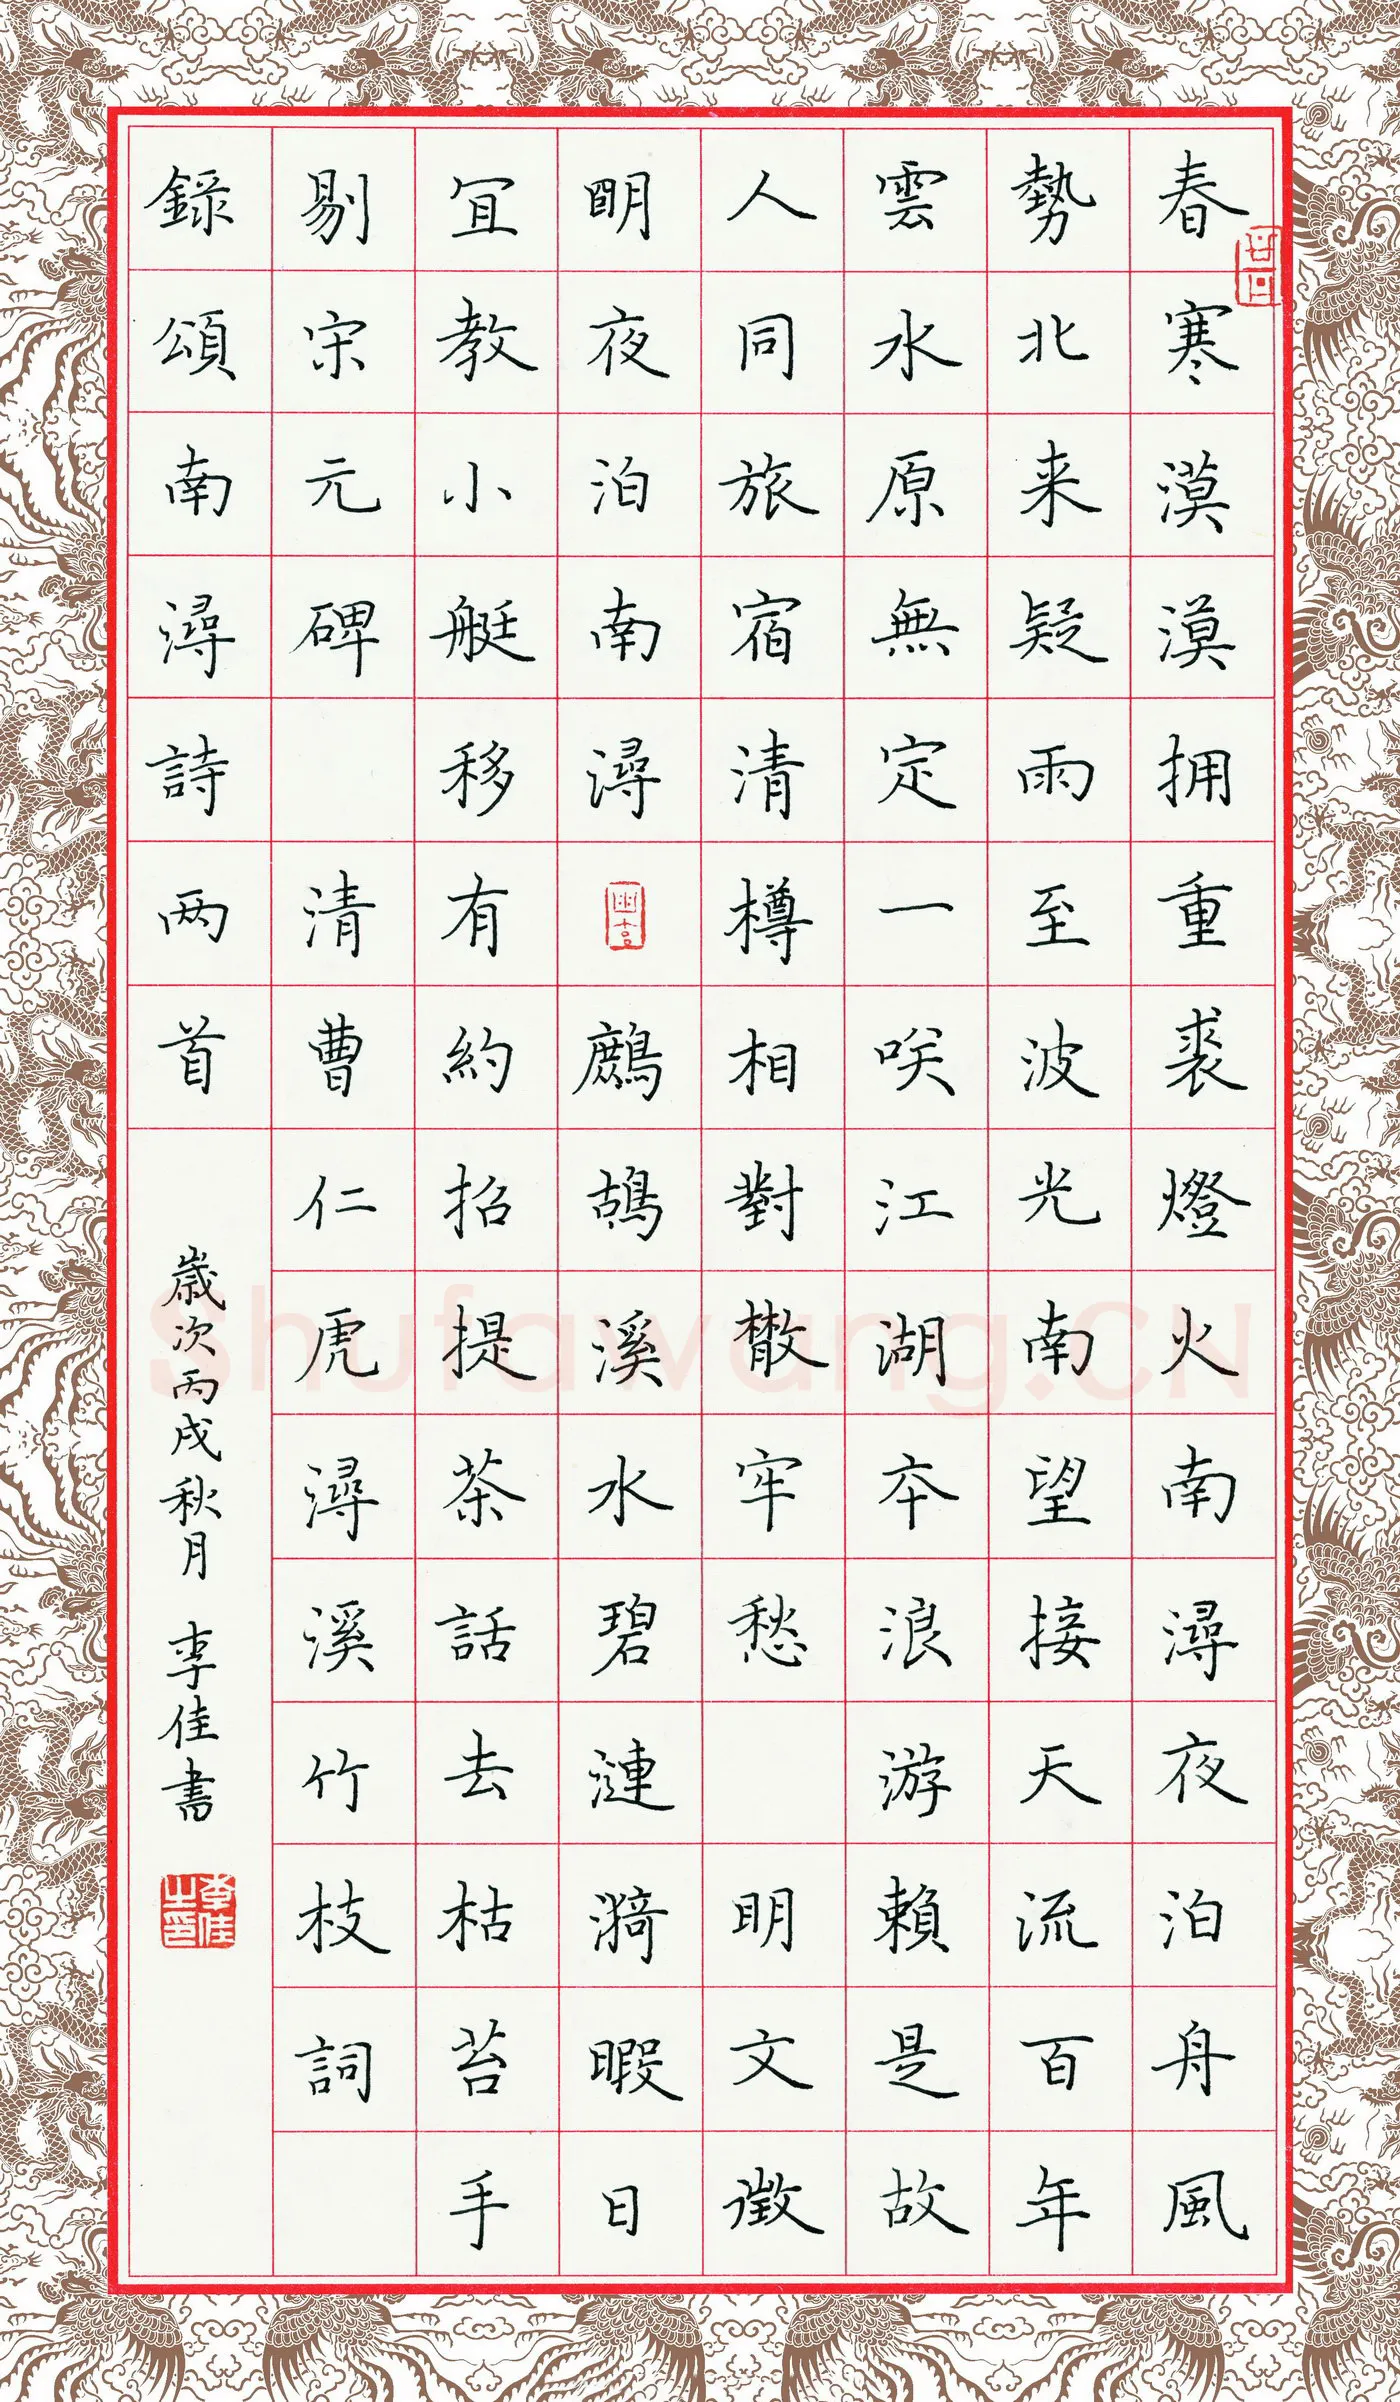 春寒漠漠拥重裘燈火南潯夜泊舟風
勢北来疑雨至波光南望接天流百年
雲水原無定一咲江湖夲浪游賴是故
人同旅宿清樽相對散牢愁 明文徵
明夜泊南潯 鷓鴣溪水碧漣漪暇日
宜教小艇移有約招提茶話去枯苔手
剔宋元碑 清曹仁虎潯溪竹枝詞
錄頌南潯詩两首
歲次丙戌秋月 李佳書
李佳之印
Shufawang.CN